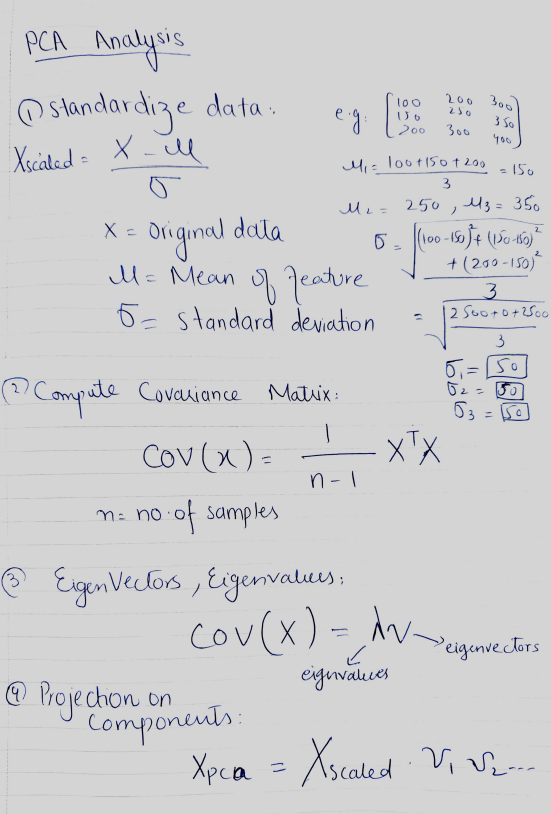 PCA Analysis
① Standardize data:
X scaled = (X - μ) / σ
X = Original data
μ = Mean of feature
σ = Standard deviation
e.g: [100 200 300
150 250 350
200 300 400]
μ₁ = (100 + 150 + 200) / 3 = 150
μ₂ = 250 , μ₃ = 350
σ = √(((100-150)² + (150-150)²
+ (200-150)²) / 3)
= √((2500+0+2500) / 3)
σ₁ = 50
σ₂ = 50
σ₃ = 50
② Compute Covariance Matrix:
COV(x) = 1 / (n-1) XᵀX
n = no. of samples
③ EigenVectors, Eigenvalues:
COV(X) = λv → eigenvectors
eigenvalues
④ Projection on
Components:
Xpca = Xscaled . v₁ v₂ ---